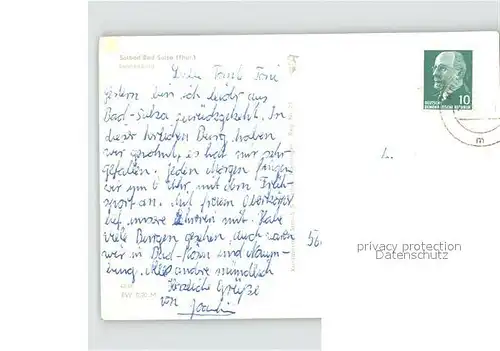 Solbad Bad Sulza (Thür.)
Liebe Tante Toni
gestern bin ich leider aus
Bad-Sulza zurückgekehrt. In
dieser hiesigen Burg haben
wir gewohnt, es hat mir sehr
gefallen. jeden Morgen fingen
wir um 6 Uhr, mit dem Früh-
sport an. Mit freiem Oberkörper
lief unsere Lehrerin mit. Habe
viele Burgen gesehen, auch waren
wir in Bad-Kösen und Naum-
burg. Alles andre mündlich
Herzliche Grüße
von Joachim
DEUTSCHE
DEMOKRATISCHE REPUBLIK
10
m
L.
56.
privacy protection
Datenschutz